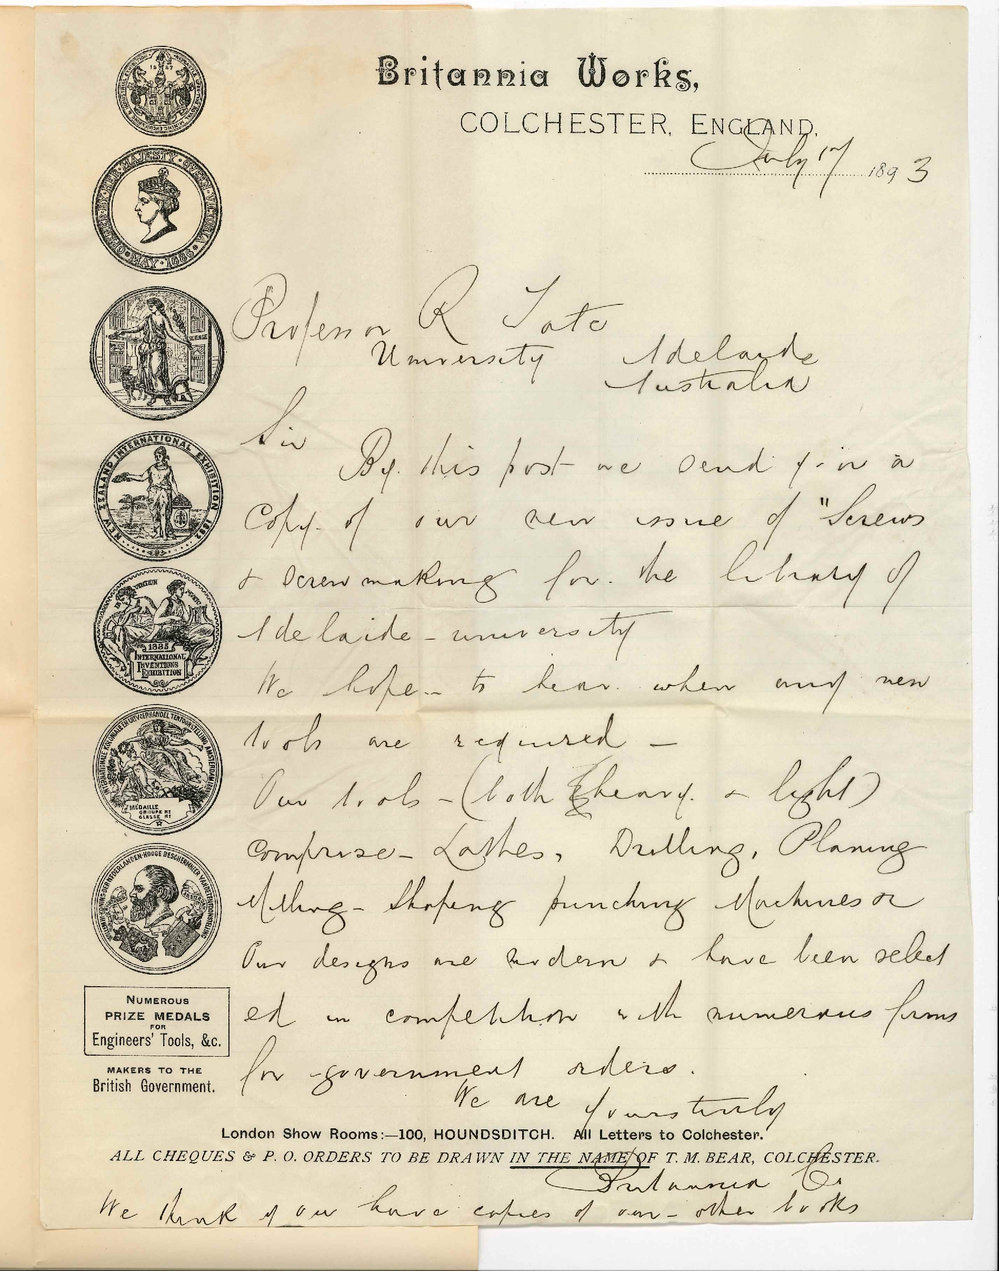 Britannia Works,
COLCHESTER, ENGLAND,
July 17 1893
Professor R Tate
University Adelaide
Australia
Sir
By this post we send you a
copy of our new issue of "Screws
& screwmaking for the library of
Adelaide university
We hope to hear when any new
tools are required —
Our tools – (both heavy & light)
comprise – Lathes, Drilling, Planing
Milling – Shaping punching Machines &c
Our designs are modern & have been select
ed in competition with numerous firms
for government orders.
We are yours truly
Britannia Co
We think you have copies of our other books
NEW ZEALAND INTERNATIONAL EXHIBITION 1882
1885
INTERNATIONAL
INVENTIONS
EXHIBITION
MEDAILLE
NUMEROUS
PRIZE MEDALS
FOR
Engineers' Tools, &c.
MAKERS TO THE
British Government.
London Show Rooms:—100, HOUNDSDITCH. All Letters to Colchester.
ALL CHEQUES & P. O. ORDERS TO BE DRAWN IN THE NAME OF T. M. BEAR, COLCHESTER.